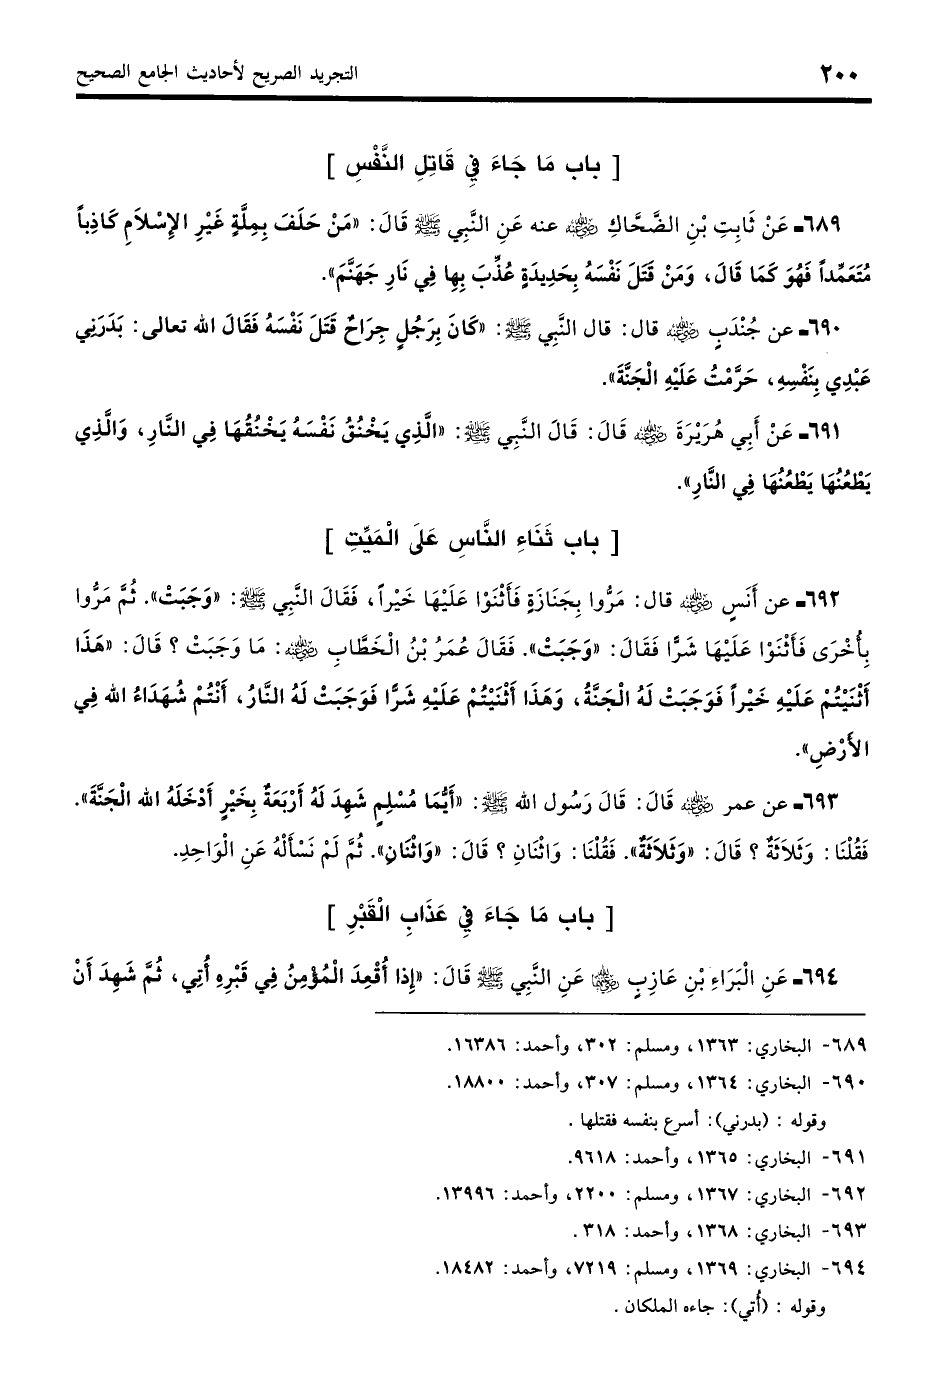 ٢٠٠ التجريد الصريح لأحاديث الجامع الصحيح
[ باب مَا جَاءَ فِي قَاتِلِ النَّفْسِ ]
٦٨٩ـ عَنْ ثَابِتِ بْنِ الضَّحَّاكِ ﵁ عنه عَنِ النَّبِي ﷺ قَالَ: «مَنْ حَلَفَ بِمِلَّةٍ غَيْرِ الإِسْلاَمِ كَاذِباً
مُتَعَمِّداً فَهُوَ كَمَا قَالَ، وَمَنْ قَتَلَ نَفْسَهُ بِحَدِيدَةٍ عُذِّبَ بِهِا فِي نَارِ جَهَنَّمَ».
٦٩٠ـ عن جُنْدَبٍ ﵁ قال: قال النَّبِي ﷺ: «كَانَ بِرَجُلٍ جِرَاحٌ قَتَلَ نَفْسَهُ فَقَالَ الله تعالى: بَدَرَنِي
عَبْدِي بِنَفْسِهِ، حَرَّمْتُ عَلَيْهِ الْجَنَّةَ».
٦٩١ـ عَنْ أَبِي هُرَيْرَةَ ﵁ قَالَ: قَالَ النَّبِي ﷺ: «الَّذِي يَخْنُقُ نَفْسَهُ يَخْنُقُهَا فِي النَّارِ، وَالَّذِي
يَطْعُنُهَا يَطْعُنُهَا فِي النَّارِ».
[ باب ثَنَاءِ النَّاسِ عَلَى الْمَيِّتِ ]
٦٩٢ـ عن أَنَسٍ ﵁ قال: مَرُّوا بِجَنَازَةٍ فَأَثْنَوْا عَلَيْهَا خَيْراً، فَقَالَ النَّبِي ﷺ: «وَجَبَتْ». ثُمَّ مَرُّوا
بِأُخْرَى فَأَثْنَوْا عَلَيْهَا شَرًّا فَقَالَ: «وَجَبَتْ». فَقَالَ عُمَرُ بْنُ الْخَطَّابِ ﵁: مَا وَجَبَتْ ؟ قَالَ: «هَذَا
أَثْنَيْتُمْ عَلَيْهِ خَيْراً فَوَجَبَتْ لَهُ الْجَنَّةُ، وَهَذَا أَثْنَيْتُمْ عَلَيْهِ شَرًّا فَوَجَبَتْ لَهُ النَّارُ، أَنْتُمْ شُهَدَاءُ الله فِي
الأَرْضِ».
٦٩٣ـ عن عمر ﵁ قَالَ: قَالَ رَسُول الله ﷺ: «أَيُّمَا مُسْلِمٍ شَهِدَ لَهُ أَرْبَعَةٌ بِخَيْرٍ أَدْخَلَهُ الله الْجَنَّةَ».
فَقُلْنَا: وَثَلاَثَةٌ ؟ قَالَ: «وَثَلاَثَةٌ». فَقُلْنَا: وَاثْنَانِ ؟ قَالَ: «وَاثْنَانِ». ثُمَّ لَمْ نَسْأَلْهُ عَنِ الْوَاحِدِ.
[ باب مَا جَاءَ فِي عَذَابِ الْقَبْرِ ]
٦٩٤ـ عَنِ الْبَرَاءِ بْنِ عَازِبٍ ﵄ عَنِ النَّبِي ﷺ قَالَ: «إِذا أُقْعِدَ الْمُؤْمِنُ فِي قَبْرِهِ أُتِي، ثُمَّ شَهِدَ أَنْ
٦٨٩- البخاري: ١٣٦٣، ومسلم: ٣٠٢، وأحمد: ١٦٣٨٦.
٦٩٠- البخاري: ١٣٦٤، ومسلم: ٣٠٧، وأحمد: ١٨٨٠٠.
وقوله : (بدرني): أسرع بنفسه فقتلها .
٦٩١- البخاري: ١٣٦٥، وأحمد: ٩٦١٨.
٦٩٢- البخاري: ١٣٦٧، ومسلم: ٢٢٠٠، وأحمد: ١٣٩٩٦.
٦٩٣- البخاري: ١٣٦٨، وأحمد: ٣١٨ .
٦٩٤- البخاري: ١٣٦٩، ومسلم: ٧٢١٩، وأحمد: ١٨٤٨٢.
وقوله : (أُتي): جاءه الملكان .